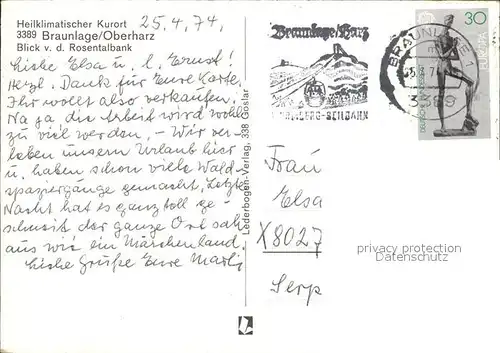 Heilklimatischer Kurort
3389 Braunlage/Oberharz
Blick v. d. Rosentalbank
25.4.74,
Liebe Elsa u. l. Ernst!
Herzl. Dank für Eure Karte.
Ihr wollt also verkaufen.
Na ja die Arbeit wird wohl
zu viel werden, – Wir ver-
leben unsern Urlaub hier
u. haben schon viele Wald-
spaziergänge gemacht. Letzte
Nacht hat es ganz toll ge-
schneit der ganze Ort sah
aus wie ein Märchenland.
Liebe Grüße Eure
Lederbogen-Verlag, 338 Goslar
Braunlage/Harz
WURMBERG-SEILBAHN
BRAUNLAGE 1
3389
30
EUROPA
DEUTSCHE BUNDESPOST
Frau
Elsa
X8027
Serp
privacy protection
Datenschutz